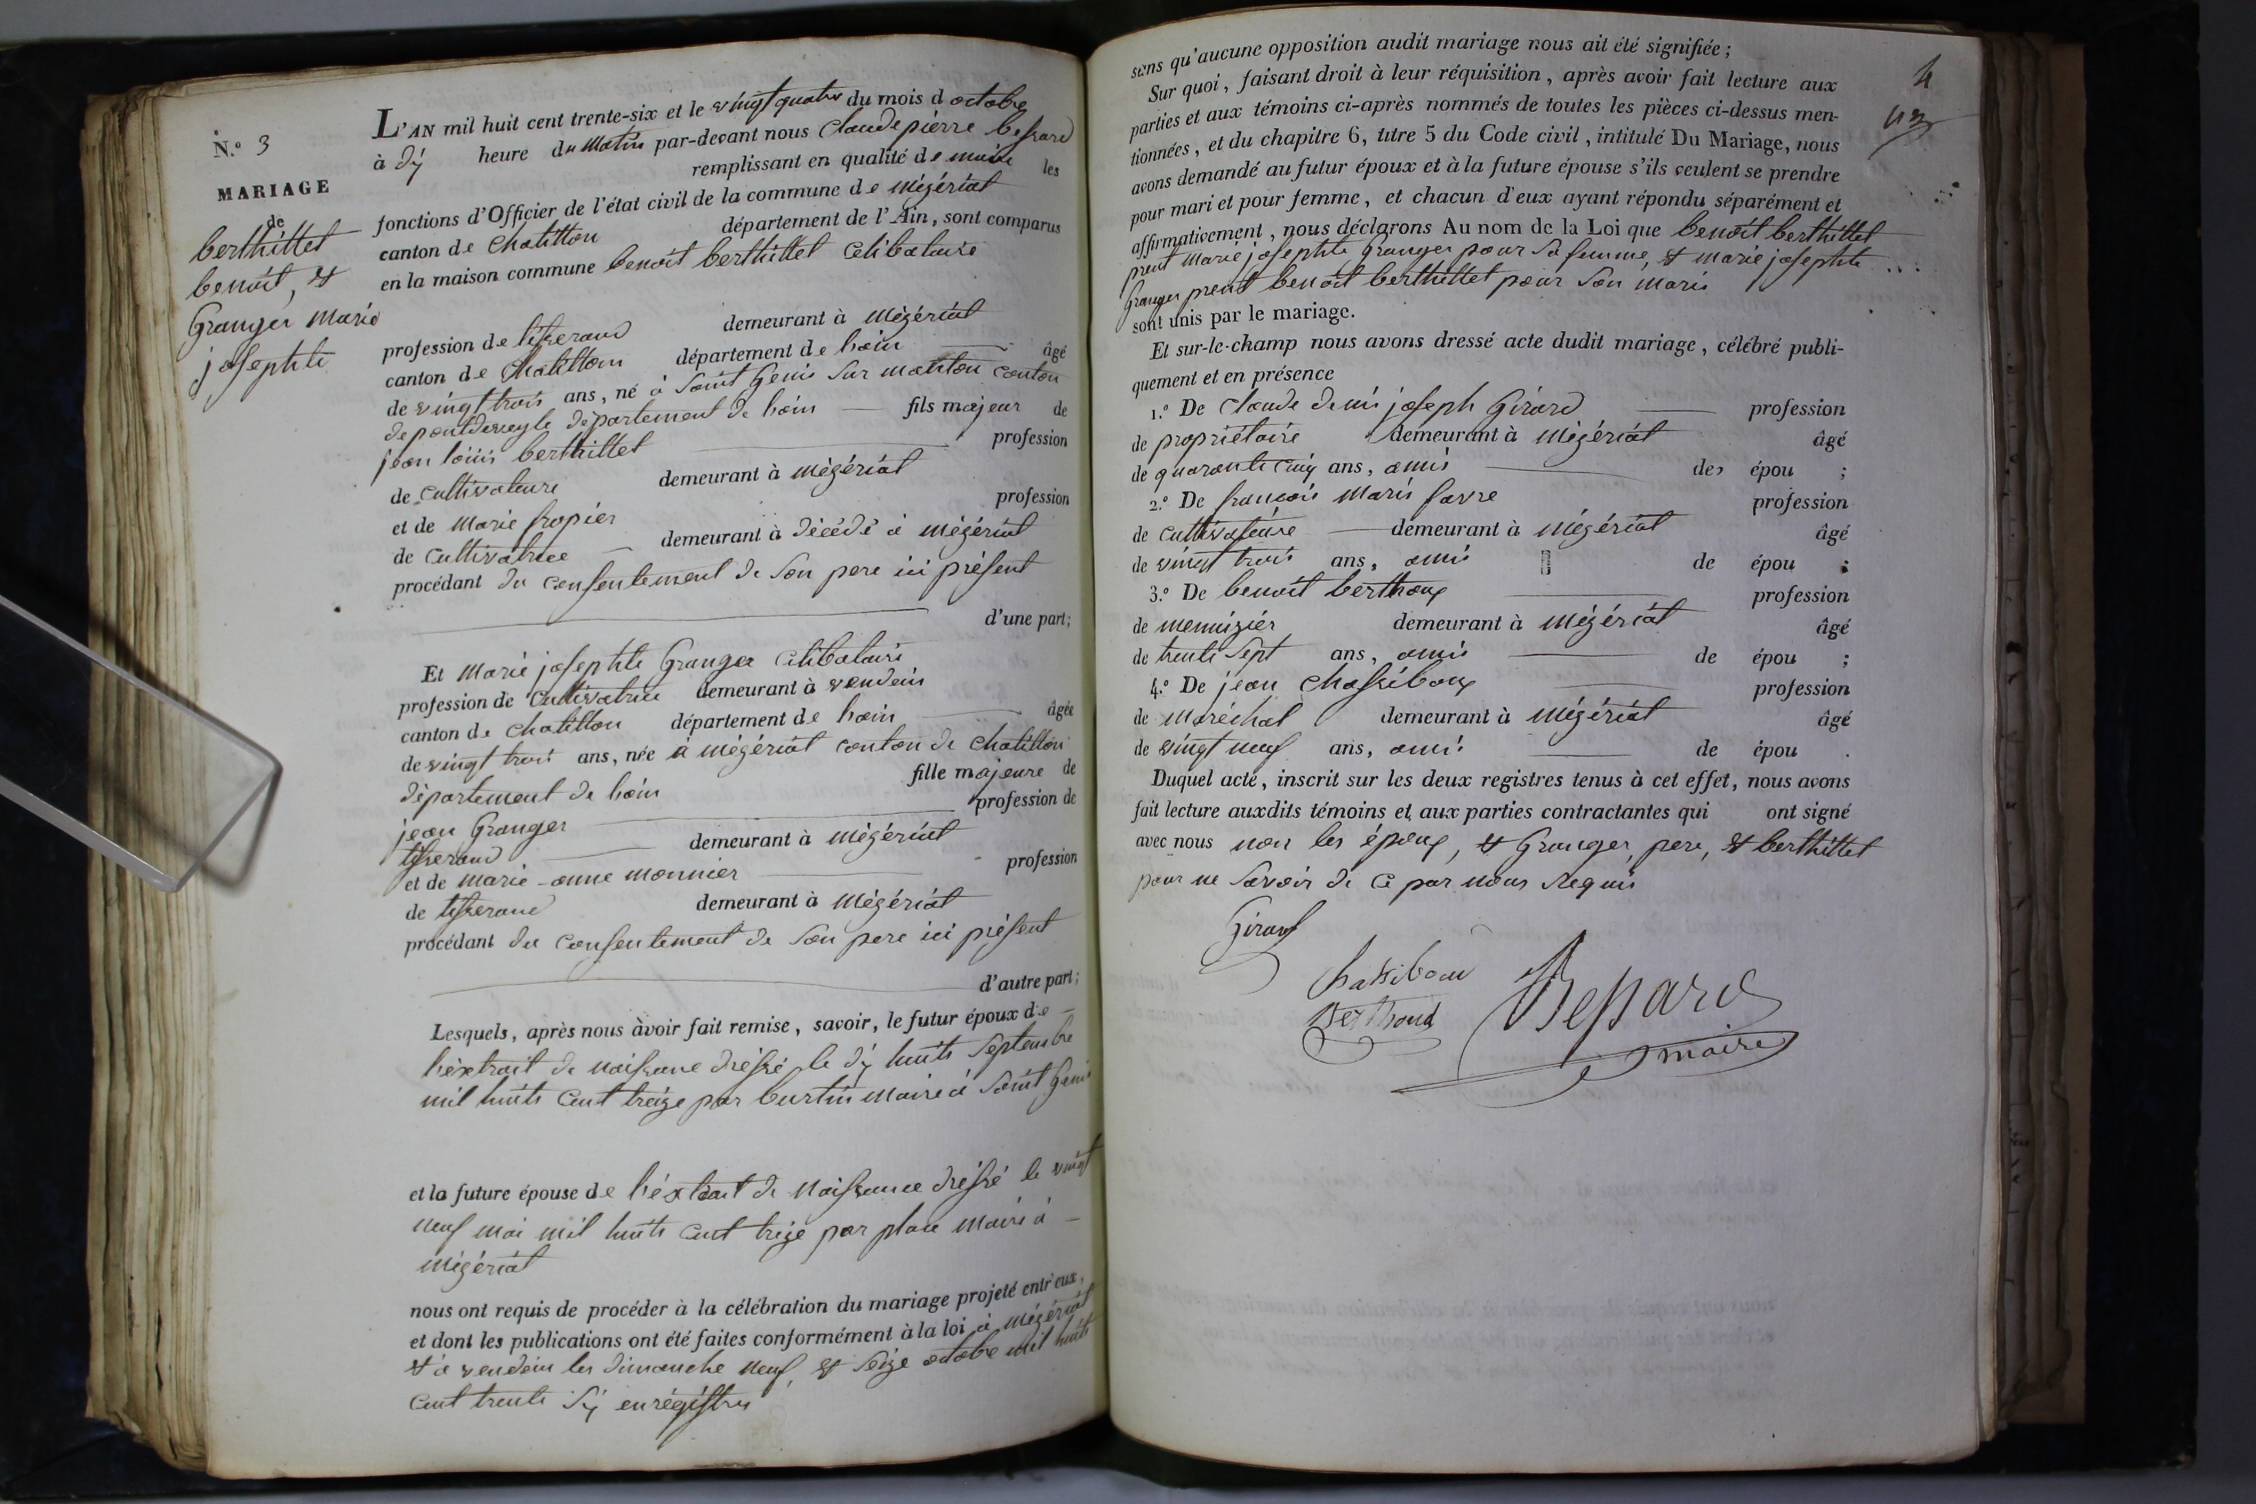 N.º 3
MARIAGE
de
berthillet
benoit, et
Granger marie
josephte
L'AN mil huit cent trente-six et le vingt quatre du mois d octobre
à dix heure du matin par-devant nous Claude pierre bessard
remplissant en qualité de maire les
fonctions d'Officier de l'état civil de la commune de mézériat
canton de Chatillon département de l'Ain, sont comparus
en la maison commune benoit berthillet Celibataire
profession de tisserand demeurant à mézériat
canton de Chatillon département de lain âgé
de vingt trois ans, né à Saint Genis Sur manton Conton
de pontdeveyle département de lain fils majeur de
jean loüis berthillet profession
de Cultivateure demeurant à mézériat
et de marie fropier profession
de Cultivatrice demeurant à décédé à mézériat
procédant du Consentement de Son pere ici présent
d'une part;
Et marie josephte Granger Celibataire
profession de Cultivatrice demeurant à vendeins
canton de Chatillon département de lain âgée
de vingt trois ans, née à mézériat Conton de Chatillon
département de lain fille majeure de
jean Granger profession de
tisserand demeurant à mézériat
et de marie-anne monnier profession
de tisserand demeurant à mézériat
procédant du Consentement de Son pere ici présent
d'autre part;
Lesquels, après nous avoir fait remise, savoir, le futur époux de
l'éxtrait de naissance dréssé le dix huits Septembre
mil huits Cent treize par burtin maire à Saint Genis
et la future épouse de l'éxtrait de naissance dréssé le vingt
neuf mai mil huits Cent treize par place maire à
mézériat
nous ont requis de procéder à la célébration du mariage projeté entr'eux,
et dont les publications ont été faites conformément à la loi à mézériat
et à vendeins les dimanche neuf, et Seize octobre mil huits
Cent trente Six enrégistrés
4
sans qu'aucune opposition audit mariage nous ait été signifiée;
Sur quoi, faisant droit à leur réquisition, après avoir fait lecture aux
parties et aux témoins ci-après nommés de toutes les pièces ci-dessus men-
tionnées, et du chapitre 6, titre 5 du Code civil, intitulé Du Mariage, nous
avons demandé au futur époux et à la future épouse s'ils veulent se prendre
pour mari et pour femme, et chacun d'eux ayant répondu séparément et
affirmativement, nous déclarons Au nom de la Loi que benoit berthillet
prent marie josephte Granger pour Sa femme, et marie josephte
Granger prent benoit berthillet pour Son maris
sont unis par le mariage.
Et sur-le-champ nous avons dressé acte dudit mariage, célébré publi-
quement et en présence
1.º De Claude denis joseph Girard profession
de propriétaire demeurant à mézériat âgé
de quarante Cinq ans, amis des épou ;
2.º De francois maris favre profession
de Cultivateure demeurant à mézériat âgé
de vingt trois ans, amis de épou ;
3.º De benoit berthoux profession
de menuizier demeurant à mézériat âgé
de trente Sept ans, amis de épou ;
4.º De jean Chassiboux profession
de maréchal demeurant à mézériat âgé
de vingt neuf ans, amis de épou .
Duquel acte, inscrit sur les deux registres tenus à cet effet, nous avons
fait lecture auxdits témoins et aux parties contractantes qui ont signé
avec nous non les époux, et Granger, pere, et berthillet
pour ne Savoir de Ce par nous Requis
Girard
Chassiboux
Berthoud
Bessard
maire